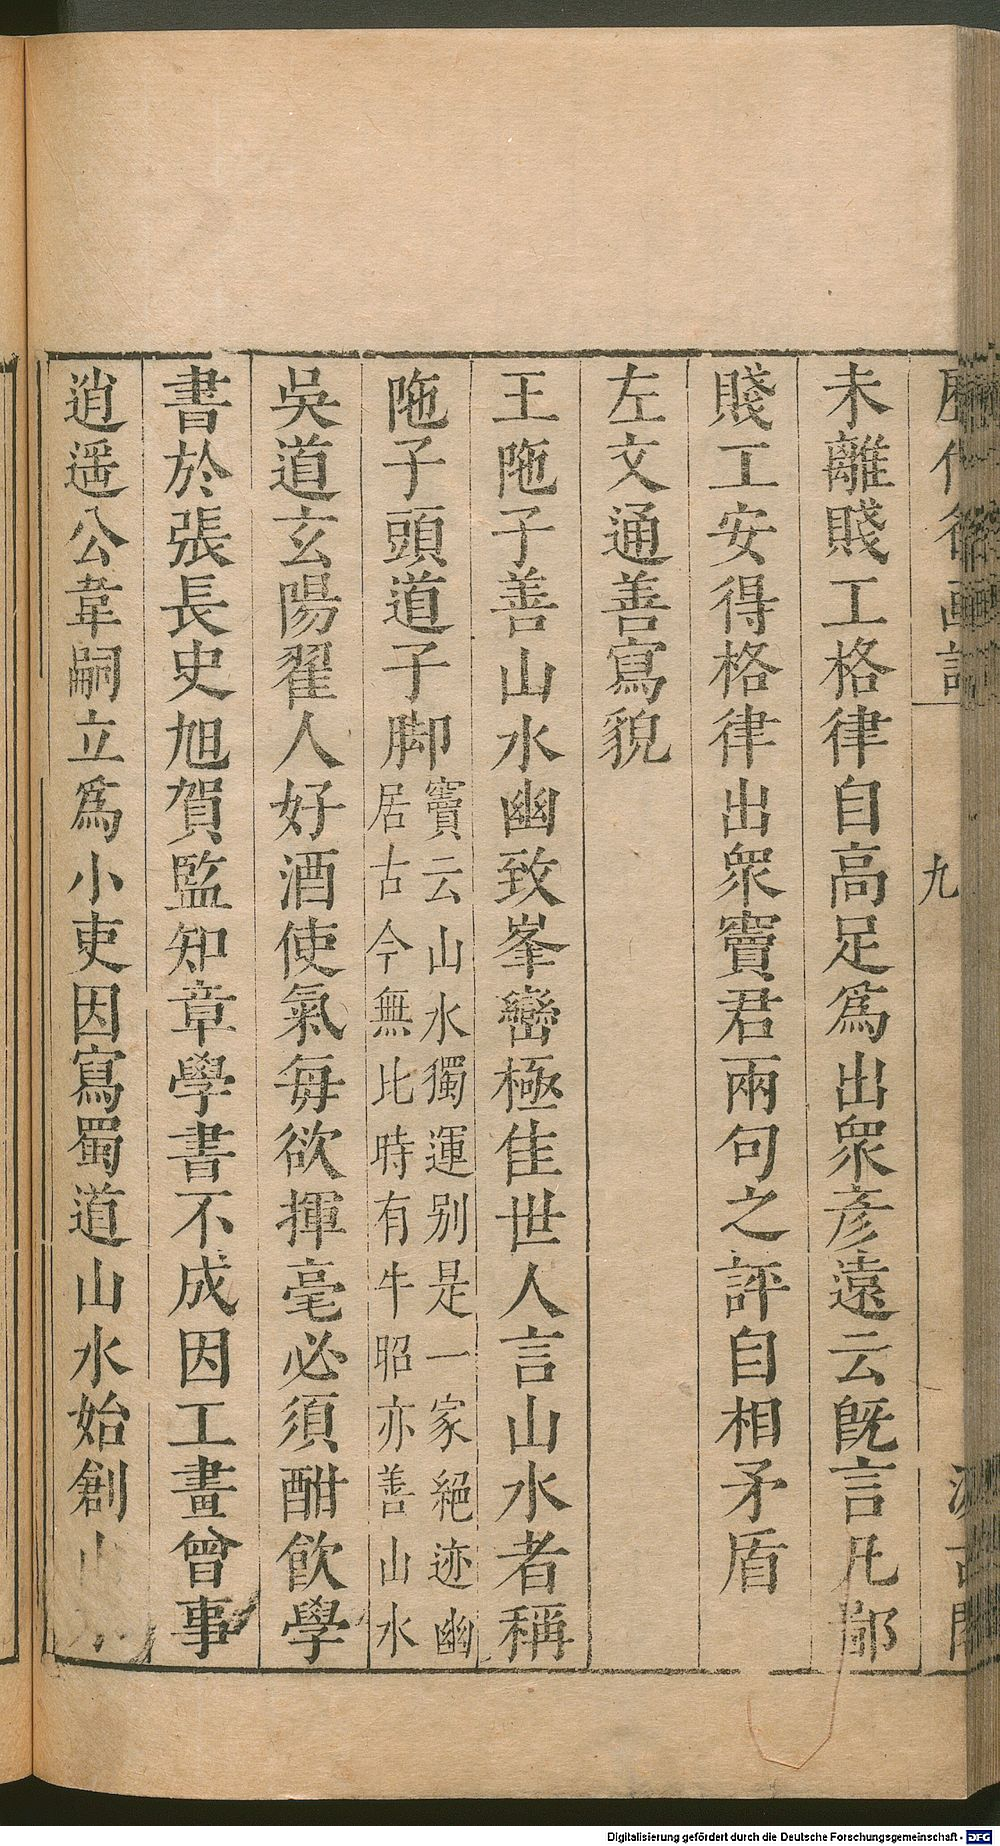 未離賤工格律自高足為出眾彥遠云旣言凡鄙
賤工安得格律出眾竇君兩句之評自相矛盾
左文通善寫貌
王陁子善山水幽致峯巒極佳世人言山水者稱
陁子頭道子脚竇云山水獨運别是一家絕迹幽
居古今無比時有牛昭亦善山水
吳道玄陽翟人好酒使氣每欲揮毫必須酣飲學
書於張長史旭賀監知章學書不成因工畫曾事
逍遥公韋嗣立爲小吏因寫蜀道山水始創山水
九
Digitalisierung gefördert durch die Deutsche Forschungsgemeinschaft - DFG